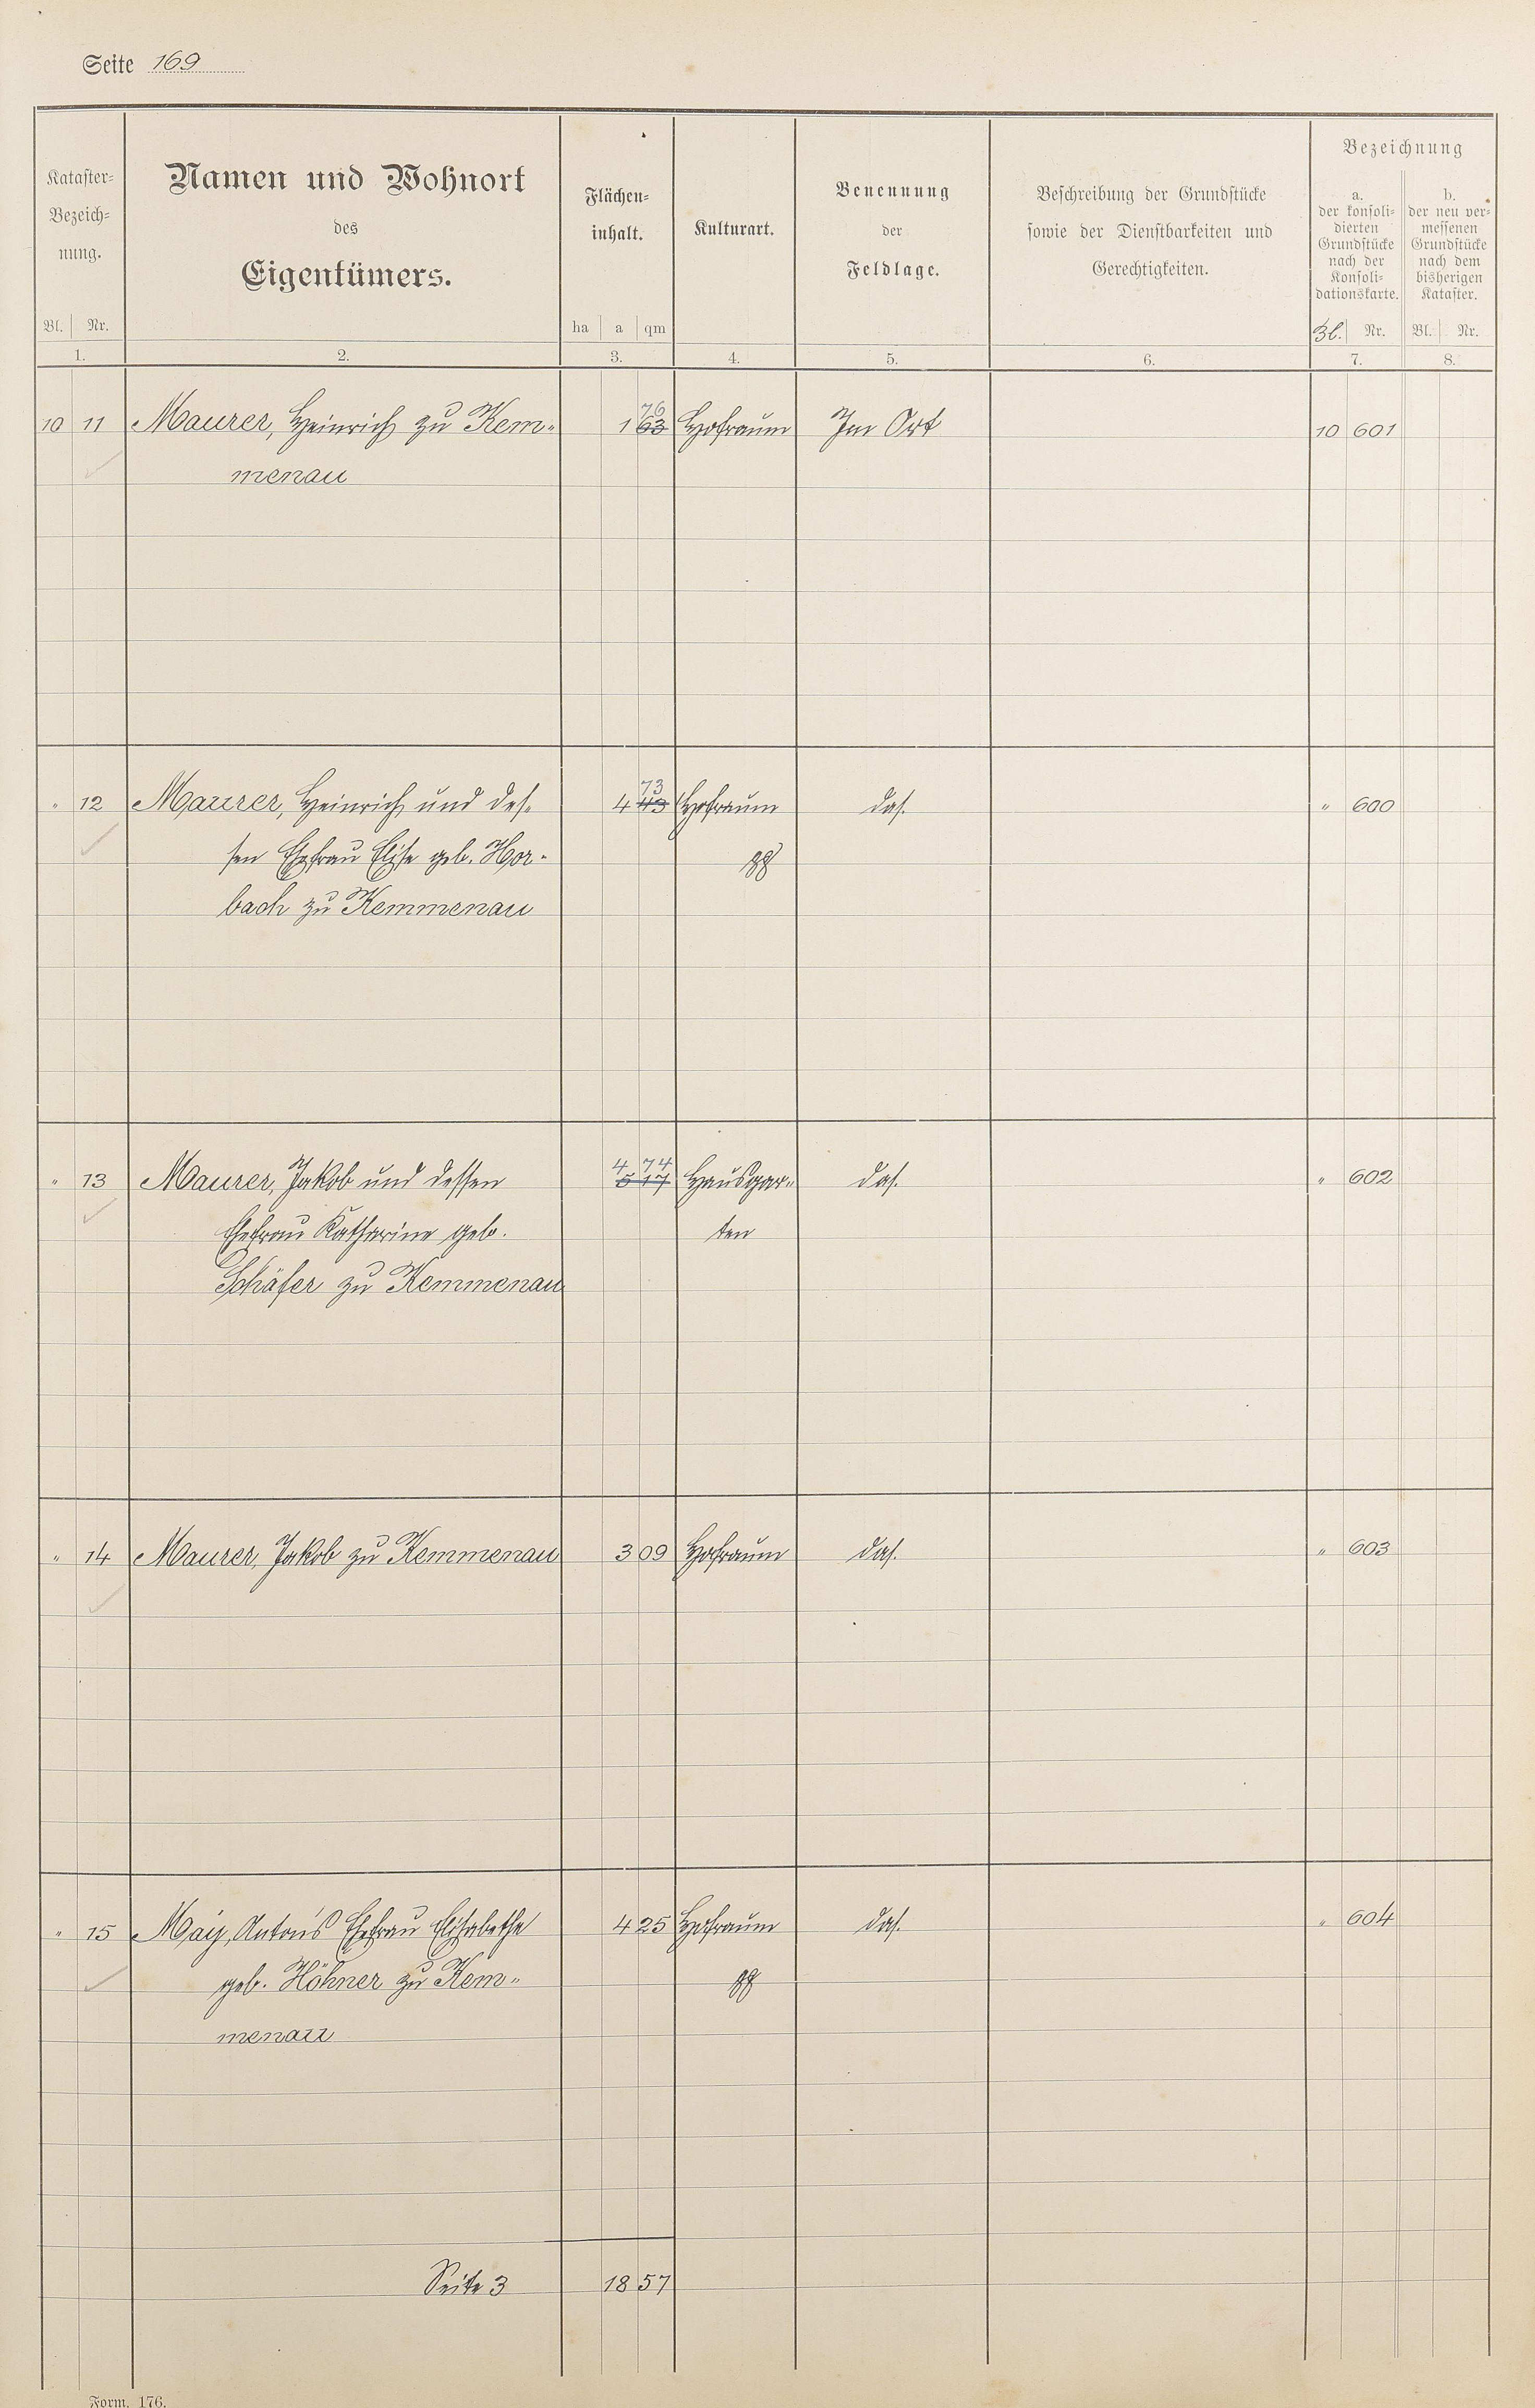 Seite 169
Kataster-
Bezeich-
nung.
Bl. Nr.
1.
Namen und Wohnort
des
Eigentümers.
2.
Flächen-
inhalt.
ha a qm
3.
Kulturart.
4.
Benennung
der
Feldlage.
5.
Beschreibung der Grundstücke
sowie der Dienstbarkeiten und
Gerechtigkeiten.
6.
Bezeichnung
a.
der konsoli-
dierten
Grundstücke
nach der
Konsoli-
dationskarte.
Bl. Nr.
7.
b.
der neu ver-
messenen
Grundstücke
nach dem
bisherigen
Kataster.
Bl. Nr.
8.
76
10 11 Maurer, Heinrich zu Kem- 1 63 Hofraum Im Ort 10 601
menau
73
" 12 Maurer, Heinrich und des- 4 43 Hofraum das. " 600
sen Ehefrau Elise geb. Hor-
bach zu Kemmenau
4 74
" 13 Maurer, Jakob und dessen 5 17 Hausgar- das. " 602
Ehefrau Katharine geb. ten
Schäfer zu Kemmenau
" 14 Maurer, Jakob zu Kemmenau 3 09 Hofraum das. " 603
" 15 May, Antons Ehefrau Elisabethe 4 25 Hofraum das. " 604
geb. Höhner zu Kem-
menau
Seite 3 18 57
Form. 176.